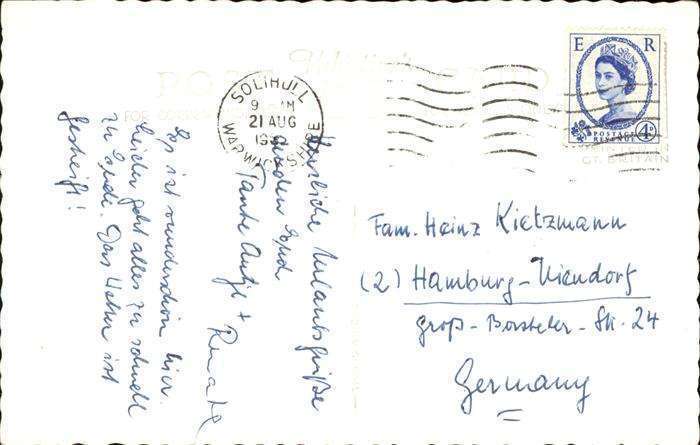 POST
SOLIHULL
9 AM
21 AUG
WARWICKSHIRE
E R
POSTAGE REVENUE 4D
GT. BRITAIN
Herzliche Urlaubsgrüße
senden Euch
Tante Antje +
Renate
Es ist wunderschön hier.
Leider geht alles zu schnell
zu Ende. Das Wetter ist
Fam. Heinz Kietzmann
(2) Hamburg-Niendorf
Groß-Borsteler-Str. 24
Germany